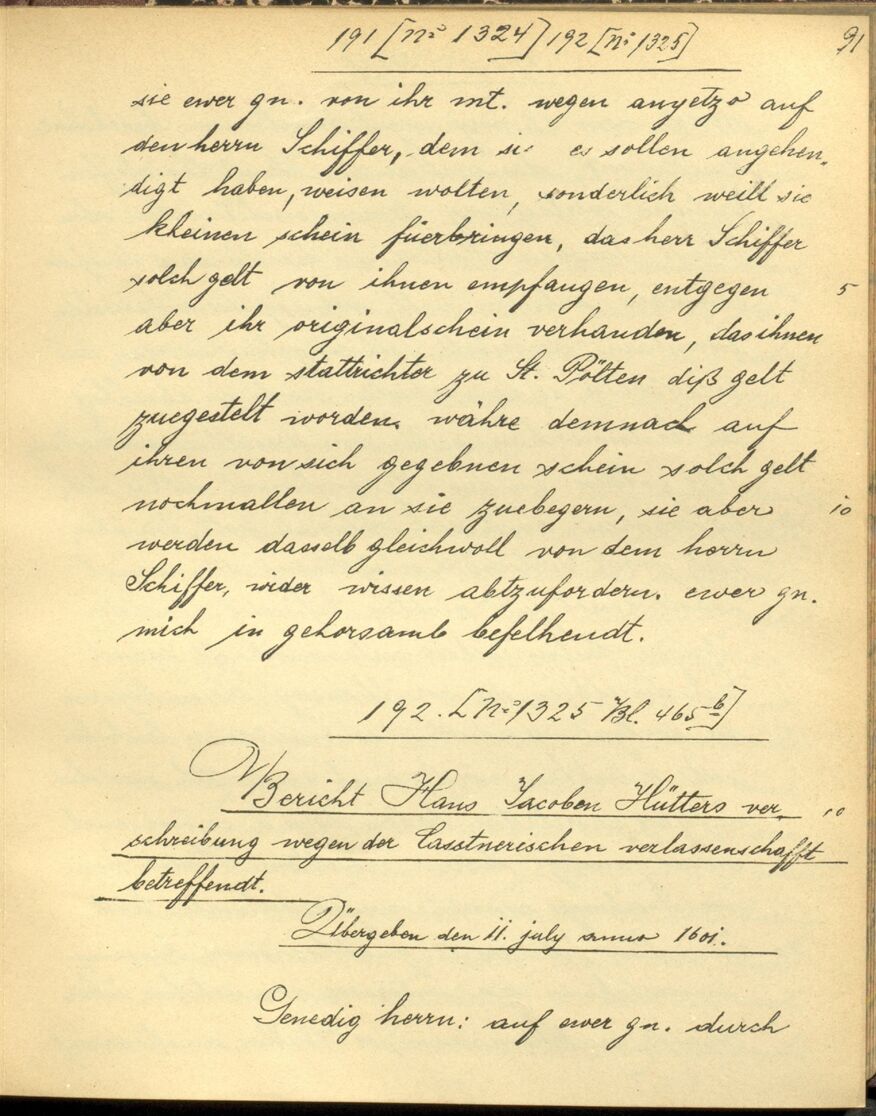 191 [No 1324] 192 [No 1325] 91
sie ewer gn. von ihr mt. wegen anyetzo auf
den herrn Schiffer, dem sie es sollen angehen-
digt haben, weisen wolten, sonderlich weill sie
kheinen schein füerbringen, das herr Schiffer
solch gelt von ihnen empfangen, entgegen 5
aber ihr originalschein verhanden, das ihnen
von dem stattrichter zu St. Pölten diß gelt
zuegestelt worden. währe demnach auf
ihren von sich gegebnen schein solch gelt
nochmallen an sie zuebegern, sie aber 10
werden dasselb gleichwoll von dem herrn
Schiffer, wider wissen abtzufordern. ewer gn.
mich in gehorsamb befelhendt.
192. [No 1325 Bl. 465b]
Bericht Hans Jacoben Hütters ver- 10
schreibung wegen der Casstnerischen verlassenschafft
betreffendt.
Übergeben den 11. july anno 1601.
Genedig herrn: auf ewer gn. durch